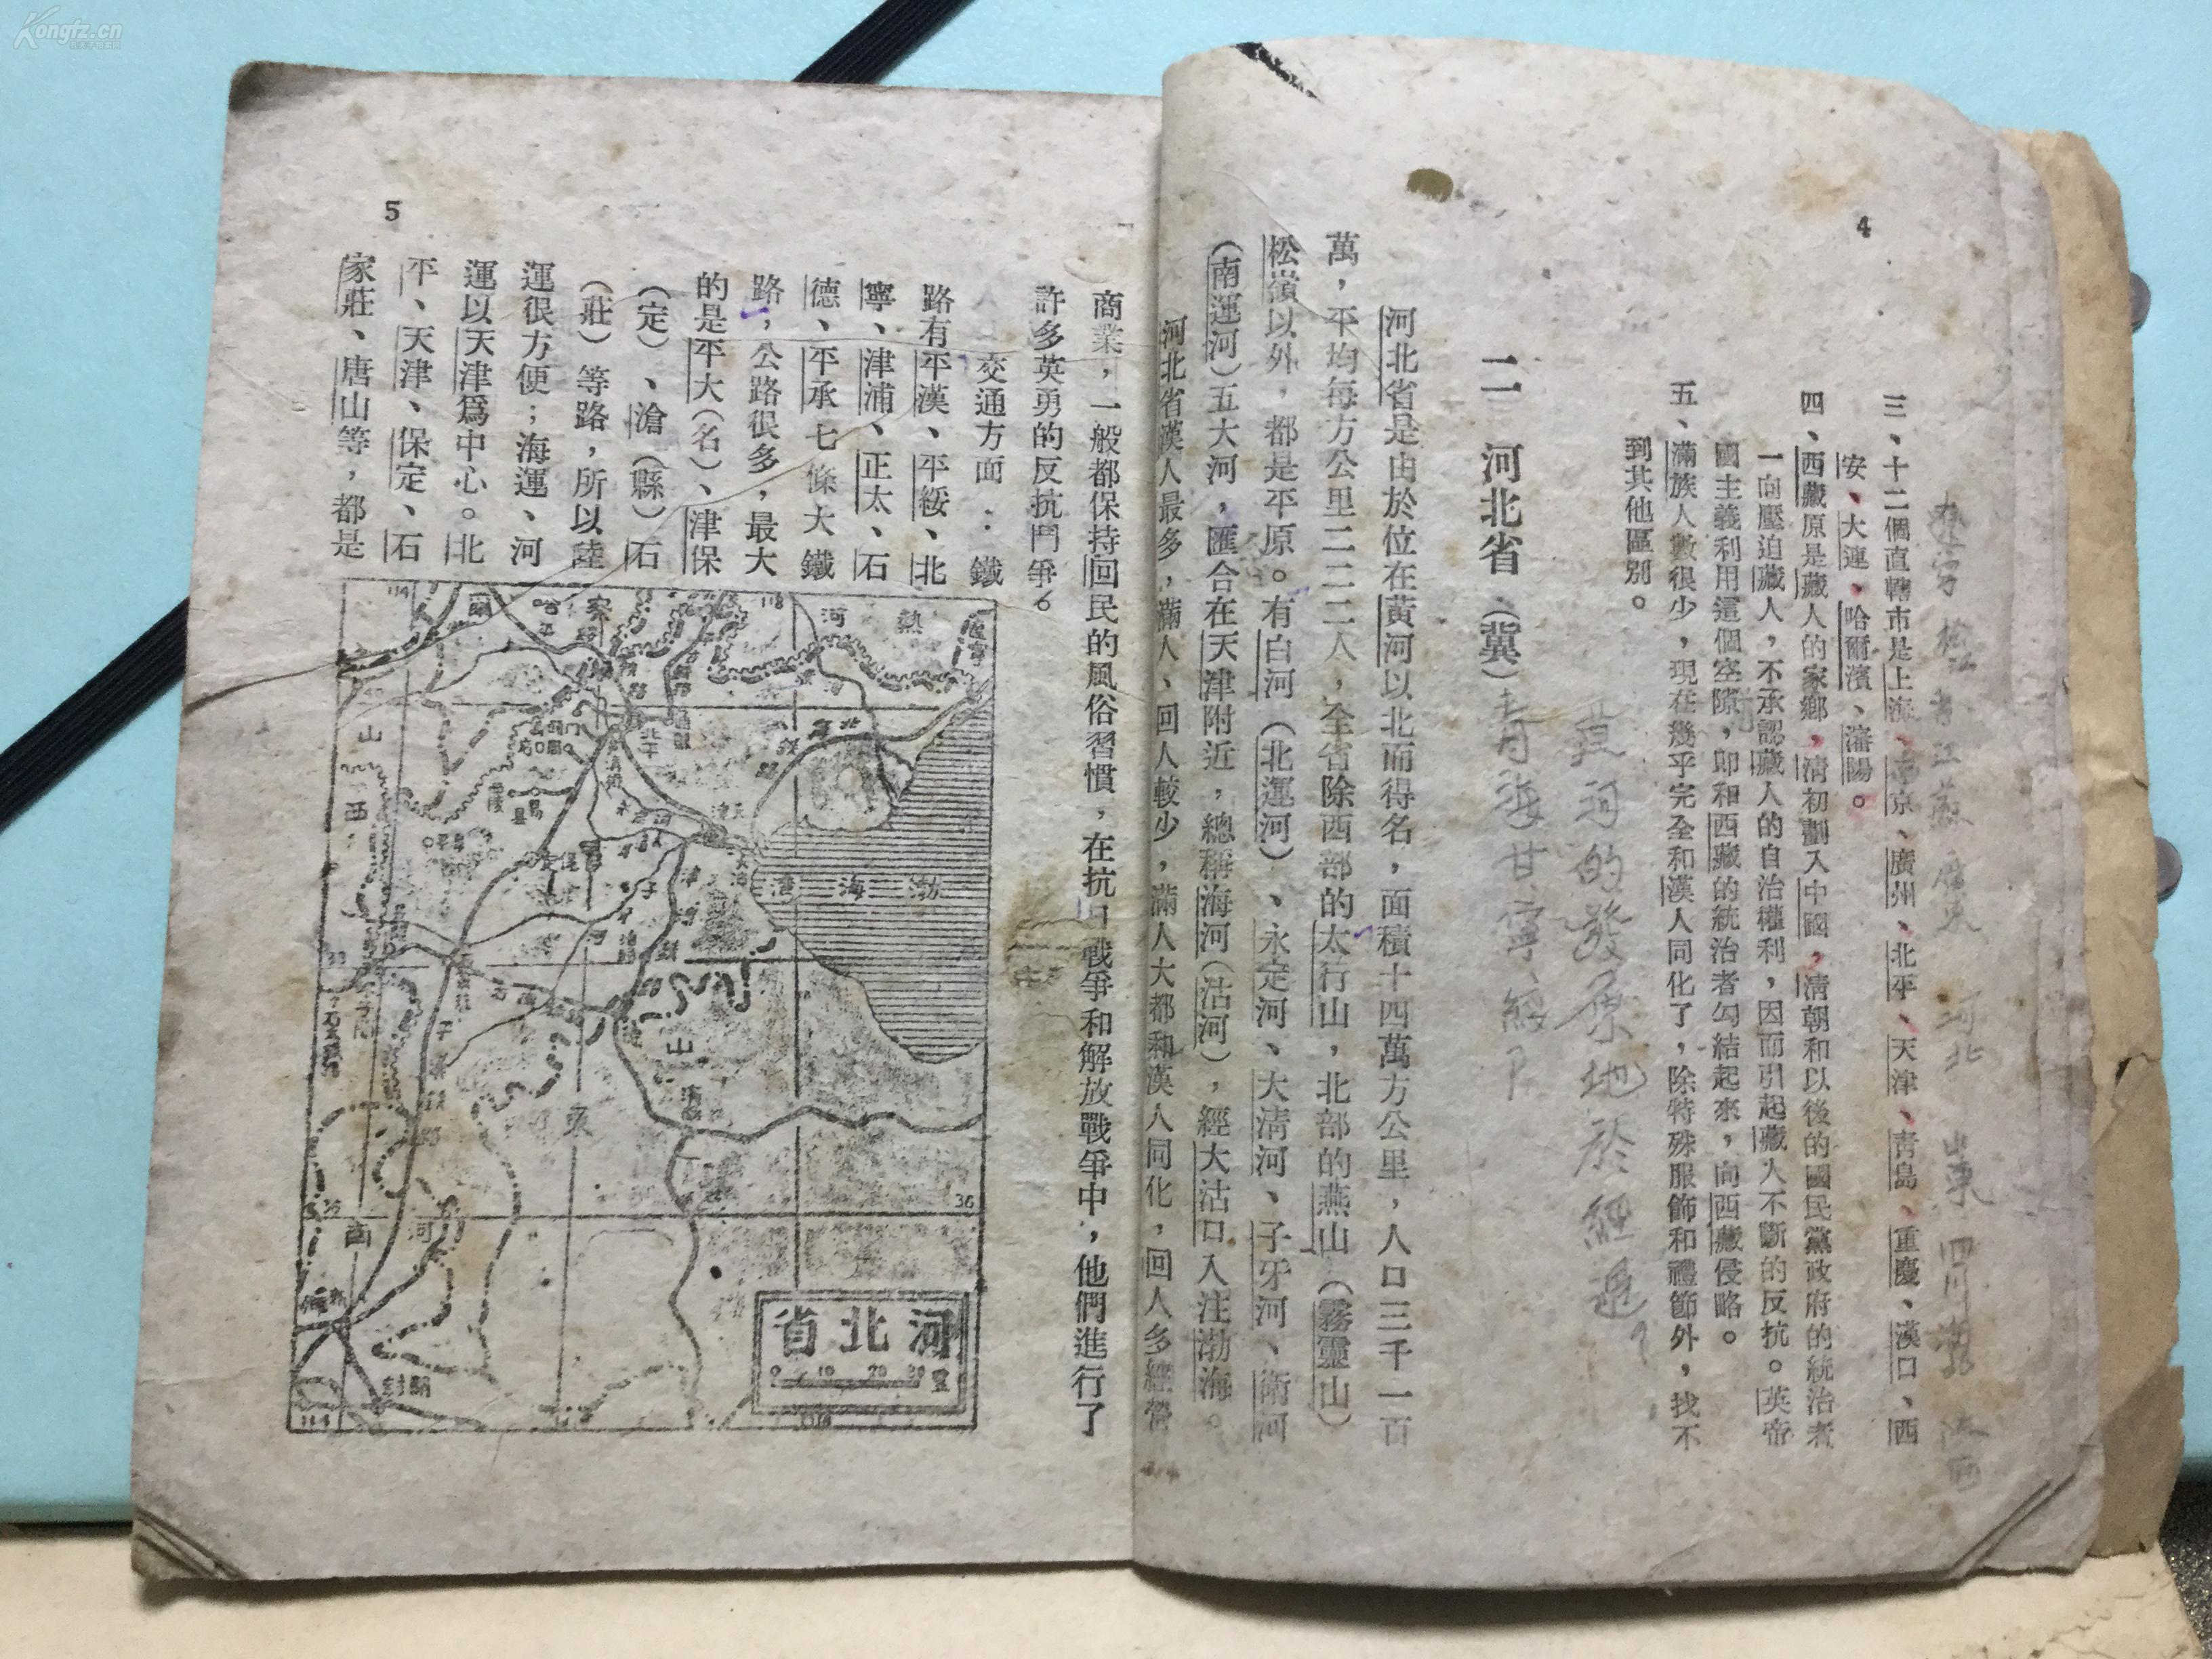 Kongfz.cn
4
三、十二個直轄市是上海、南京、廣州、北平、天津、青島、重慶、漢口、西
安、大連、哈爾濱、瀋陽。
四、西藏原是藏人的家鄉，清初劃入中國，清朝和以後的國民黨政府的統治者
一向壓迫藏人，不承認藏人的自治權利，因而引起藏人不斷的反抗。英帝
國主義利用這個空隙，卽和西藏的統治者勾結起來，向西藏侵略。
五、滿族人數很少，現在幾乎完全和漢人同化了，除特殊服飾和禮節外，找不
到其他區別。
二 河北省（冀）
河北省是由於位在黃河以北而得名，面積十四萬方公里，人口三千一百
萬，平均每方公里二二二人，全省除西部的太行山，北部的燕山（霧靈山）
松嶺以外，都是平原。有白河（北運河）、永定河、大清河、子牙河、衛河
（南運河）五大河，匯合在天津附近，總稱海河（沽河），經大沽口入注渤海。
河北省漢人最多，滿人、回人較少，滿人大都和漢人同化，回人多經營
5
商業，一般都保持回民的風俗習慣，在抗日戰爭和解放戰爭中，他們進行了
許多英勇的反抗鬥爭。
交通方面：鐵
路有平漢、平綏、北
寧、津浦、正太、石
德、平承七條大鐵
路，公路很多，最大
的是平大（名）、津保
（定）、滄（縣）石
（莊）等路，所以陸
運很方便；海運、河
運以天津爲中心。北
平、天津、保定、石
家莊、唐山等，都是
熱
河
察
渤海灣
山
西
山
東
河
南
開封
河北省
0 10 20 30 里
114
118
36